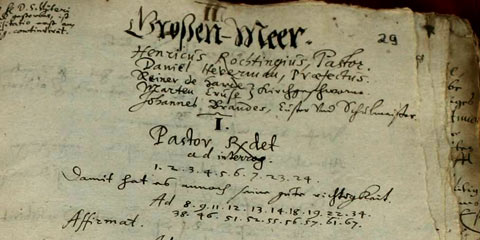 29
Großen-Meer.
Henricus Röchtingius, Pastor.
Daniel Heverman, Præfectus.
Reiner de Harde
Marten Cruse } Kirchgeschworne
Johannes Brandes, Cüster und Schulmeister.
I.
Pastor Rxdet
ad interrog.
1. 2. 3. 4. 5. 6. 7. 23. 24.
Damit hat es annoch seine gute richtigkeit.
Ad 8. 9. 11. 12. 13. 14. 18. 19. 22. 34.
38. 46. 51. 52. 55. 56. 57. 61. 67.
Affirmat.